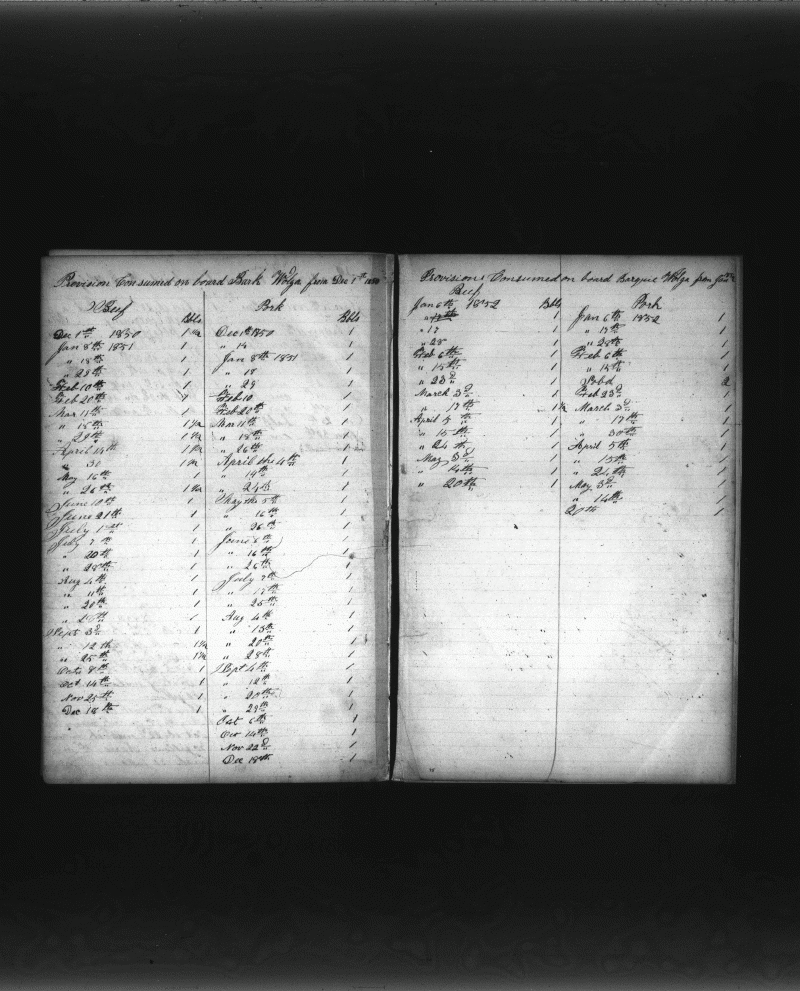 Provision Consumed on board Bark Wolga from Dec 1st 1850
Beef
Bbls
Dec 1st 1850 1
Jan 8th 1851 1
" 18th 1
" 28th 1
Feb 10th 1
Feb 20th
Mar 11th 1
" 18th 1½
" 29th
April 14th
" 31
May 16th 1
" 26th
June 10th 1
June 21th 1
July 1st 1
July 7th 1
" 20th 1
" 28th 1
Aug 4th 1
" 11th 1
" 20th 1
" 1
Sept 3d 1
" 12th 1½
" 25th 1½
Octo 8th 1
Oct 14th 1
Nov 25th 1
Dec 18th 1
Pork
Bbls
Dec 1st 1850 1
" 14 1
Jan 8th 1851 1
" 18 1
" 29 1
Feb 10 1
Feb 20th 1
Mar 11th 1
" 18th 1
" 26th 1
April the 4th 1
" 14th 1
" 24th 1
May the 5th 1
" 16th 1
" 26th 1
June 6th 1
" 16th 1
" 26th 1
July 7th 1
" 17th 1
" 25th 1
Aug 4th 1
" 13th 1
" 20th 1
" 28th 1
Sept 4th 1
" 12th 1
" 20th 1
" 29th 1
Oct 6th 1
Oct 14th 1
Nov 22d 1
Dec 18th 1
Provisions Consumed on board Barque Wolga from Jan
Beef
Jan 6th 1852 Bbls
" 1
" 17 1
" 28 1
Feb 6th 1
" 15th 1
" 23d 1
March 3d 1
" 17th 1½
April 5th 1
" 15th 1
" 24th 1
May 3d 1
" 14th 1
" 20th 1
Pork
Jan 6th 1852 1
" 17th 1
" 28th 1
Feb 6th 1
" 15th 1
2
Feb 23d 1
March 3d 1
" 17th 1
" 30th 1
April 5th 1
" 15th 1
" 24th 1
May 3d 1
" 14th 1
20th 1